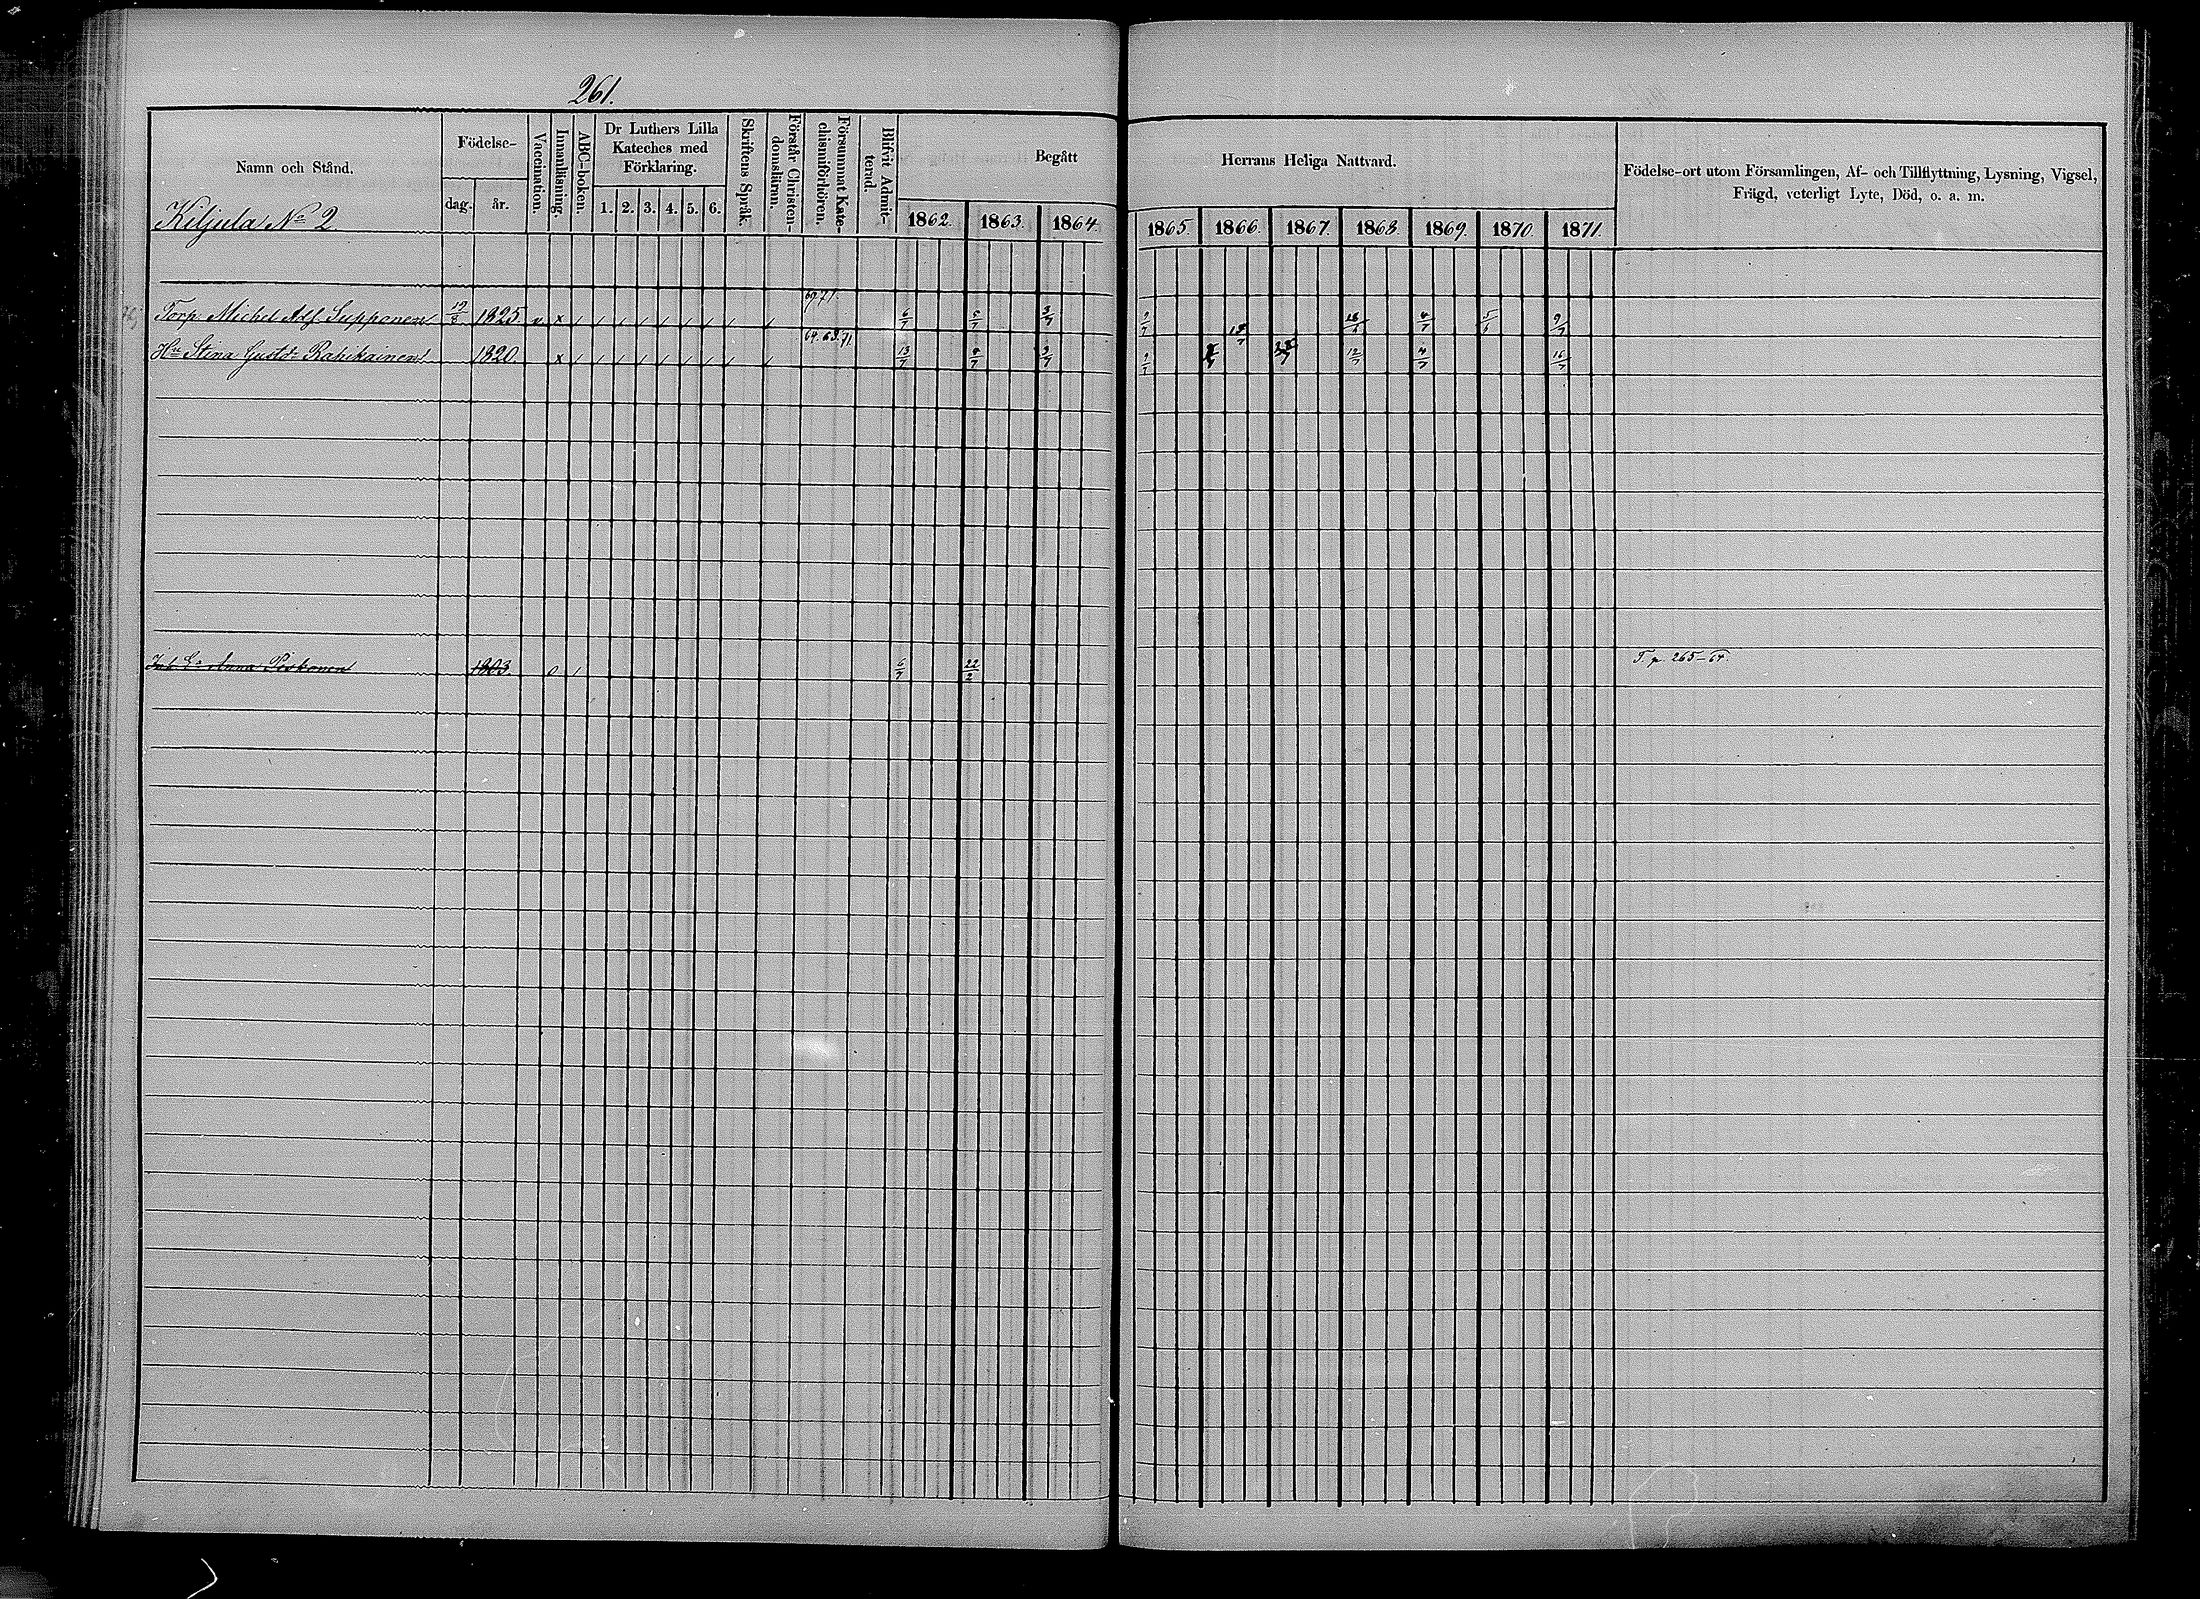 261.
Namn och Stånd.
Födelse-
dag. år.
Vaccination.
Innanläsning.
ABC-boken.
Dr Luthers Lilla
Kateches med
Förklaring.
1. 2. 3. 4. 5. 6.
Skriftens Språk.
Förstår Christen-
domsläran.
Försummat Kate-
chismiförhören.
Blifvit Admit-
terad.
Begått Herrans Heliga Nattvard.
1862. 1863. 1864. 1865. 1866. 1867. 1868 1869. 1870. 1871.
Födelse-ort utom Församlingen, Af- och Tillflyttning, Lysning, Vigsel,
Frägd, veterligt Lyte, Död, o. a. m.
Kiljula No 2.
Torp. Michel Supponen 19/8 1825 v x 6/7 5/7 3/7 2/7 13/7 28/6 4/7 5/6 9/7
69 71.
Hu Stina Gustdr Rahikainen 1820 x 13/7 5/7 3/7 2/7 12/7 4/7 16/7
64. 68. 71
Anna Piskonen 1803. 0 6/7 22/2 T. p. 265-64.